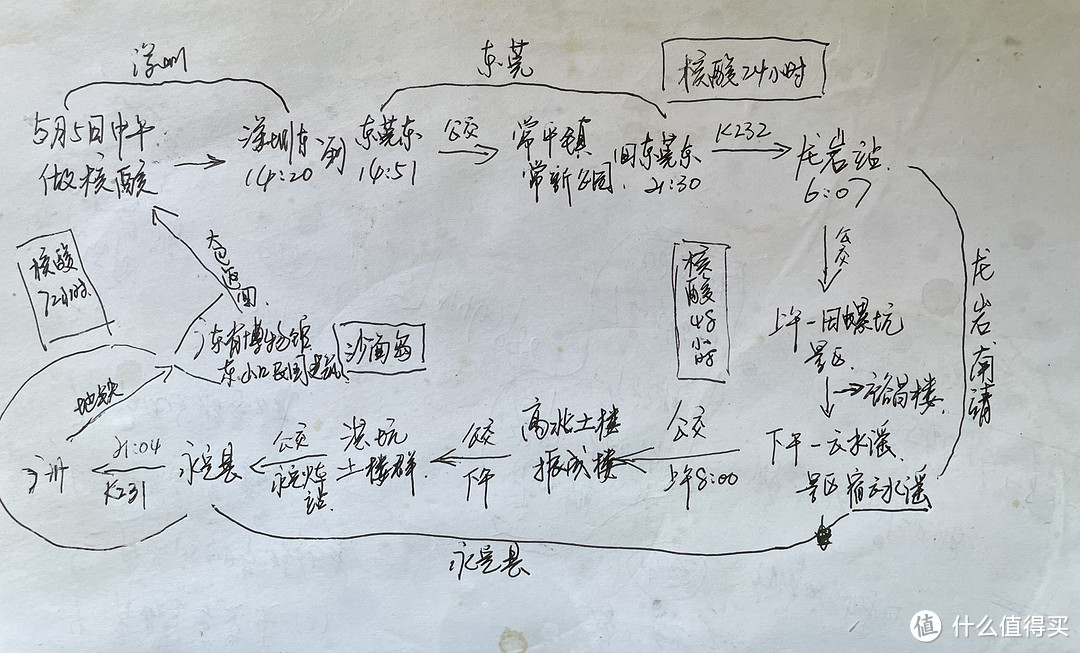 深圳
东莞
核酸24小时
5月5日中午
做核酸
深圳东
14:20
到
东莞东
14:51
公交
常平镇
常新公园
回东莞东
21:30
K232
龙岩站
6:07
龙岩南靖
公交
上午一田螺坑
景区
→裕昌楼
下午一云水谣
景区 宿云水谣
核酸48小时
公交
上午8:00
高北土楼
振成楼
公交
下午
洪坑
土楼群
公交
永定火车站
永定县
永定县
21:04
K231
广州
地铁
广东省博物馆
东山口民国建筑
沙面岛
大巴返回
核酸
72小时
值 什么值得买